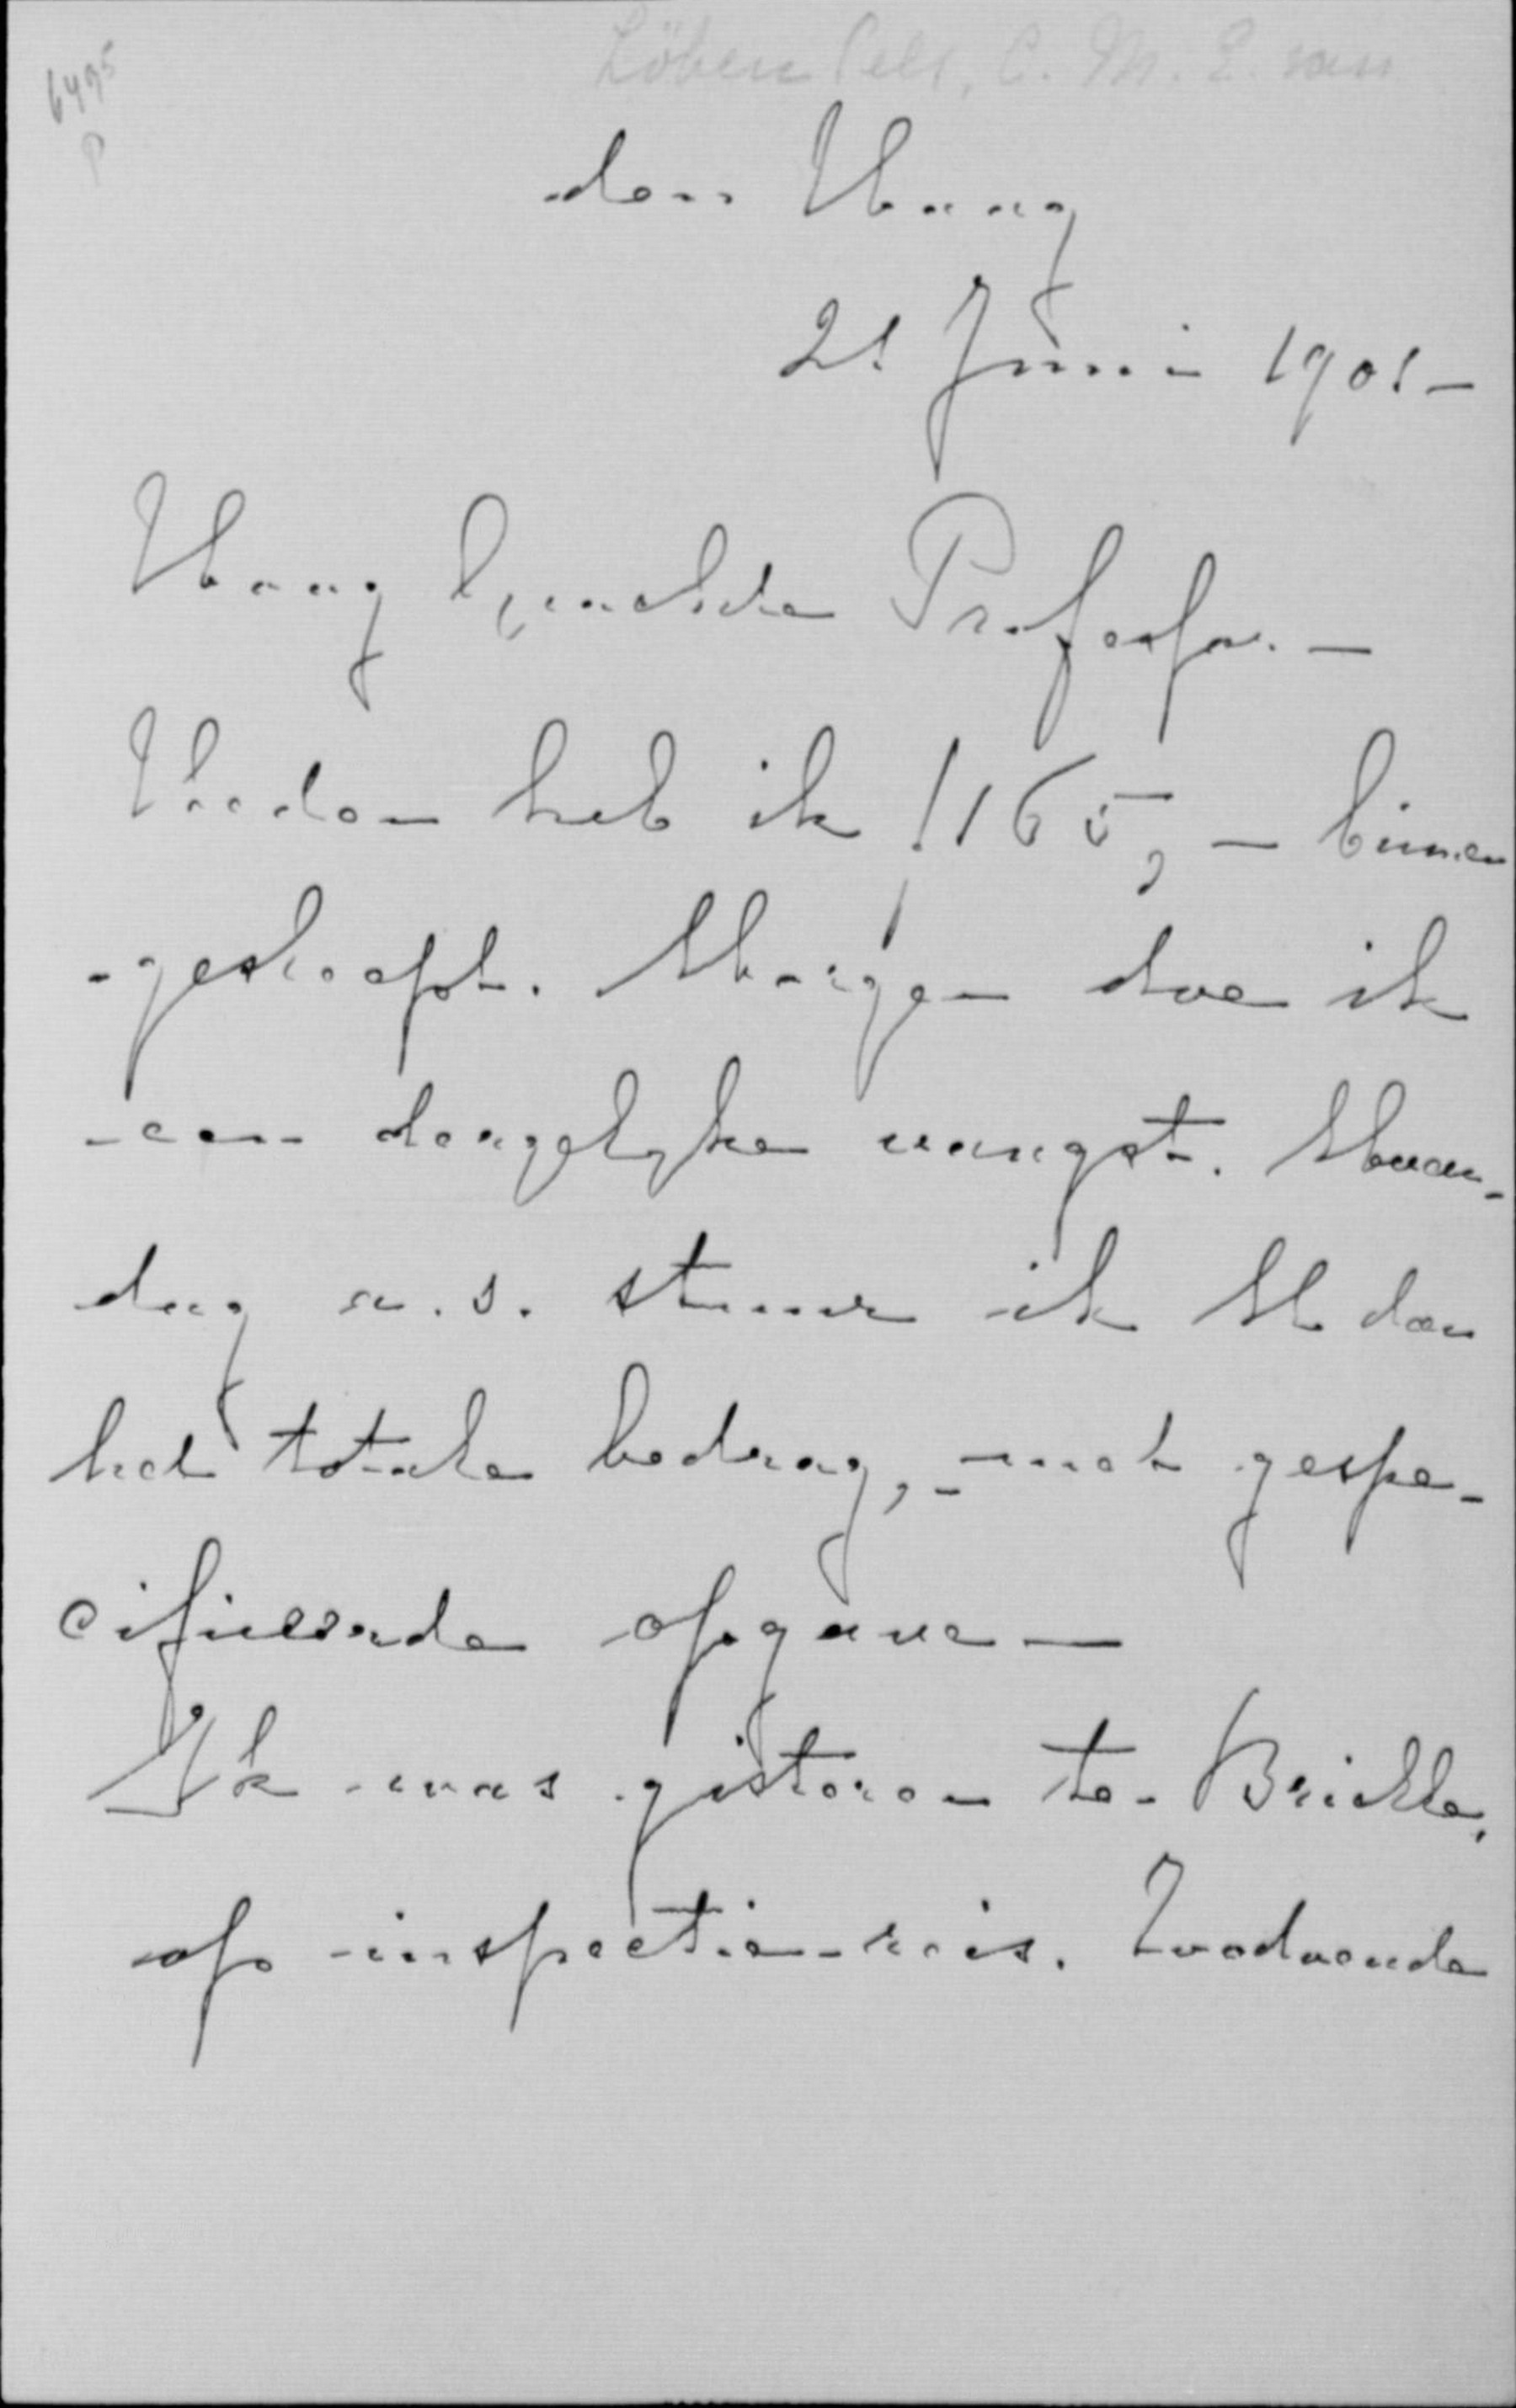 Löben Sels, C. M. E. van
6495
P
den Haag
21 Juni 1901 –
Hoog Geachte Professor. –
Heden heb ik ƒ165,– binnen
gesleept. Morgen doe ik
een dergelyke vangst. Maan-
dag a.s. stuur ik U dan
het totale bedrag, met gespe-
cificeerde opgave –
Ik was gisteren te Brielle,
op inspectie-reis. Zoodoende